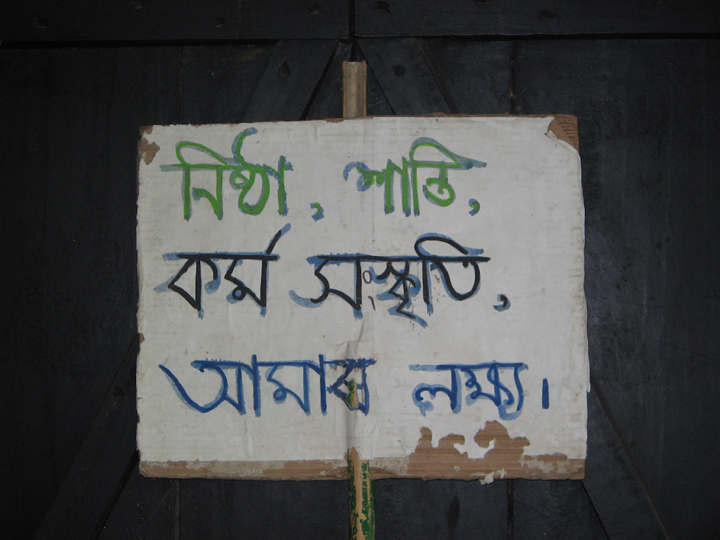 নিষ্ঠা, শান্তি,
কর্ম সংস্কৃতি,
আমার লক্ষ্য।